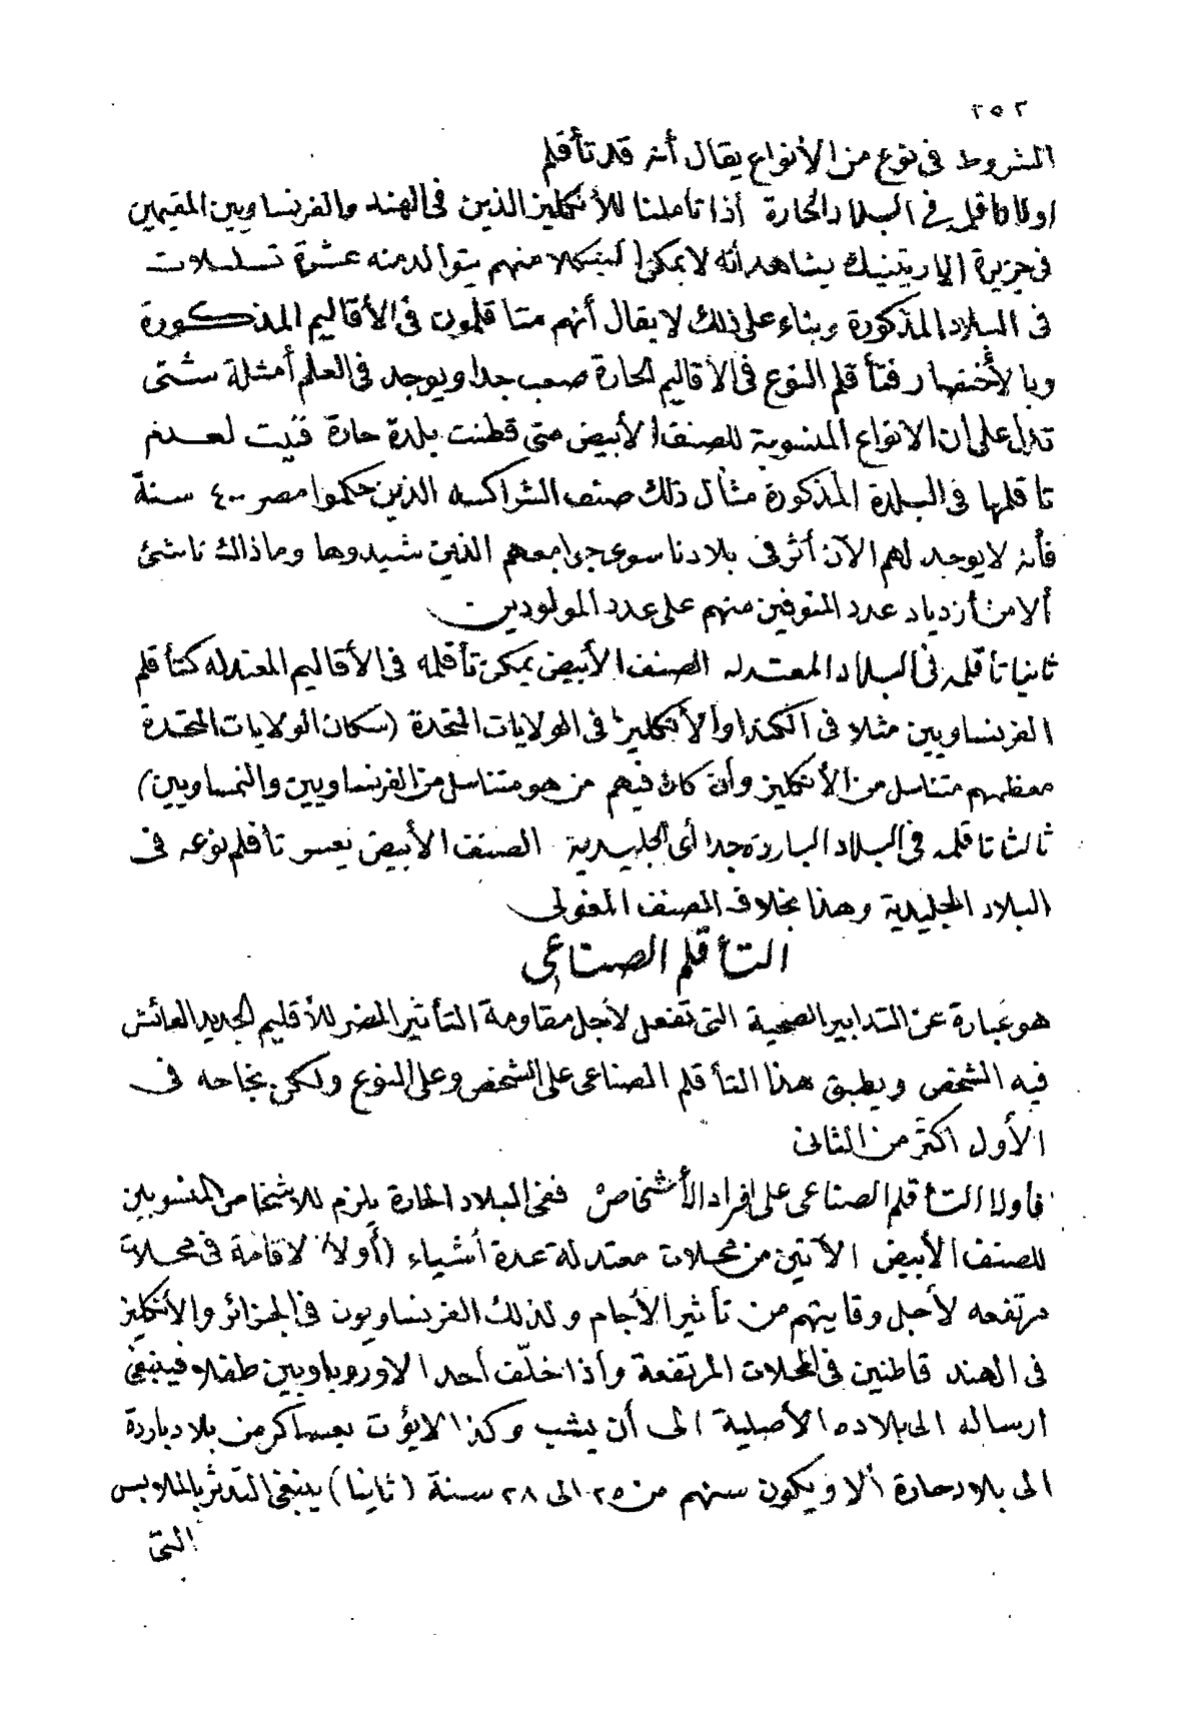 ٢٥٢
الشروط فى نوع من الأنواع يقال أنه قد تأقلم
اولا تاقلمه فى البلاد الحارة أذا تأملنا للأنكليز الذين فى الهند والفرنساويين المقيمين
فى جزيرة المارتينيك يشاهد أنه لا يمكن أن كلا منهم يتوالد منه عشرة تسلسلات
فى البلاد المذكورة وبناء على ذلك لا يقال أنهم متاقلمون فى الأقاليم المذكورة
وبالأختصار فتأقلم النوع فى الأقاليم الحارة صعب جدا ويوجد فى العلم أمثلة شتى
تدل على ان الانواع المنسوبة للصنف الأبيض متى قطنت بلدة حارة فنيت لعدم
تاقلمها فى البلدة المذكورة مثال ذلك صنف الشراكسه الذين حكموا مصر ٤٠٠ سنة
فأنه لا يوجد لهم الآن أثر فى بلادنا سوى جوامعهم الذين شيدوها وما ذاك ناشئ
ألا من أزدياد عدد المتوفين منهم على عدد المولودين
ثانيا تأقلمه فى البلاد المعتدله الصنف الأبيض يمكن تأقلمه فى الأقاليم المعتدله كتأقلم
الفرنساويين مثلا فى الكندا والأنكليز فى الولايات المتحدة (سكان الولايات المتحدة
معظمهم متناسل من الأنكليز وأن كان فيهم من هو متناسل من الفرنساويين والنمساويين)
ثالثا تاقلمه فى البلاد الباردة جدا أى الجليدية الصنف الأبيض يعسر تأقلم نوعه فى
البلاد الجليدية وهذا بخلاف الصنف المغولى
التأقلم الصناعى
هو عبارة عن التدابير الصحية التى تفعل لأجل مقاومة التأثير المضر للأقليم الجديد العائش
فيه الشخص ويطبق هذا التأقلم الصناعى على الشخص وعلى النوع ولكن نجاحه فى
الأول اكثر من الثانى
فأولا التأقلم الصناعى على افراد الأشخاص ففى البلاد الحارة يلزم للاشخاص المنسوبين
للصنف الأبيض الآتين من محلات معتدلة عدة أشياء (أولا) لاقامة فى محلات
مرتفعه لأجل وقايتهم من تأثير الأجام ولذلك الفرنساويون فى الجزائر والأنكليز
فى الهند قاطنين فى المحلات المرتفعة وأذا خلّف أحد الاوروباويين طفلا فينبغى
ارساله الى بلاده الأصلية الى أن يشب وكذا لا يؤت بعساكر من بلاد باردة
الى بلاد حارة ألا ويكون سنهم من ٢٥ الى ٢٨ سنة (ثانيا) ينبغى التدثر بالملابس
التى